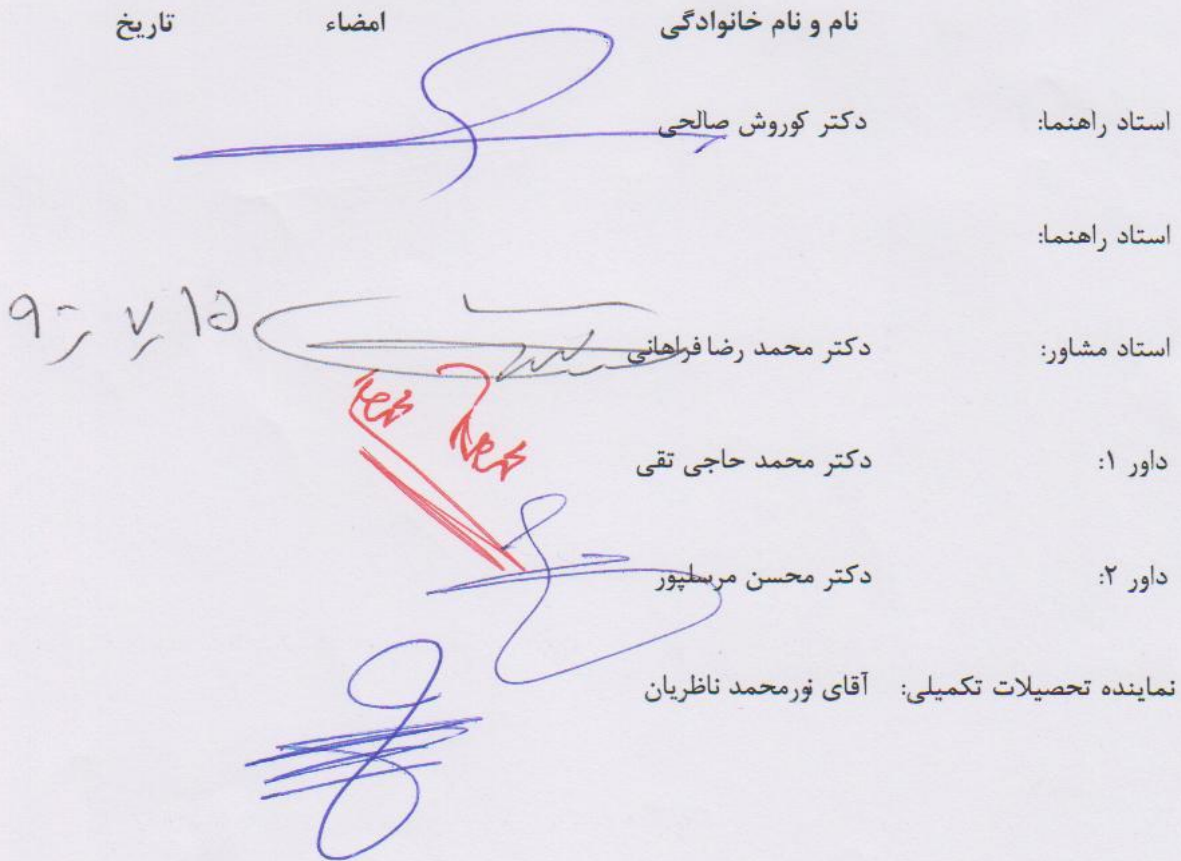 نام و نام خانوادگی امضاء تاریخ
استاد راهنما: دکتر کوروش صالحی
استاد راهنما:
استاد مشاور: دکتر محمد رضا فراهانی
داور ۱: دکتر محمد حاجی تقی
داور ۲: دکتر محسن مرسلپور
نماینده تحصیلات تکمیلی: آقای نورمحمد ناظریان